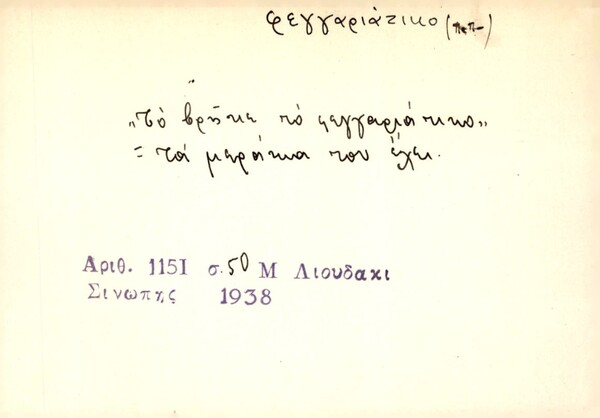 φεγγαριάτικο (πεπ-)
„Τὸ βρῆκε τὸ φεγγαριάτικο„
= τὰ μεράκια του ἔχει.
Αριθ. 1151 σ. 50 Μ Λιουδακι
Σινωπης 1938